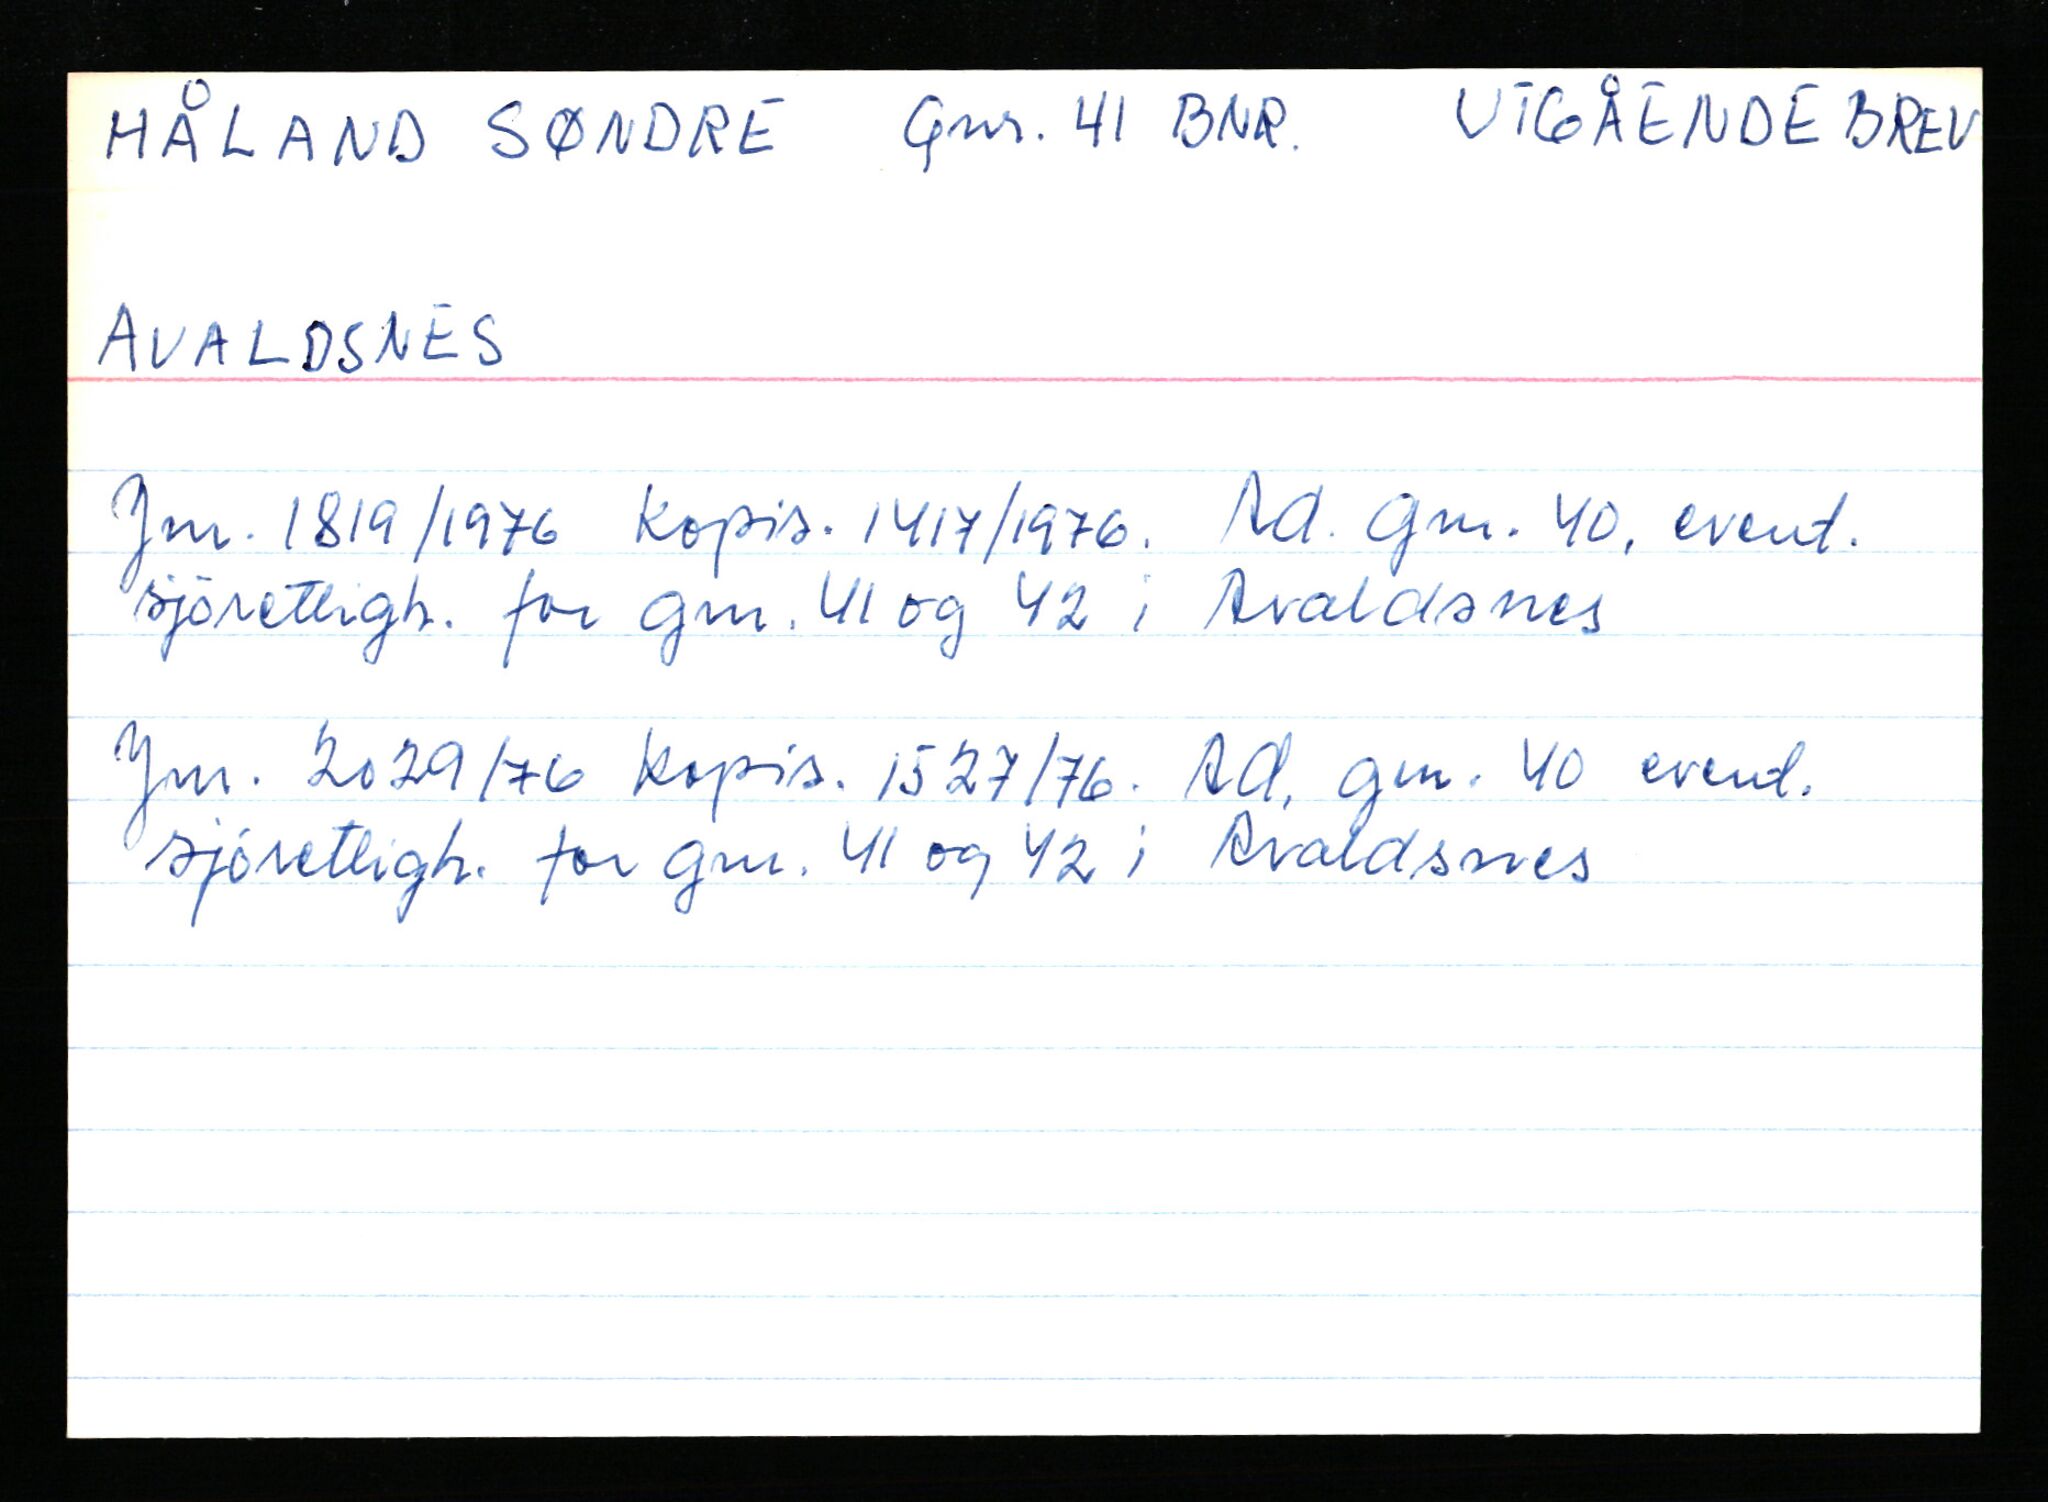 HÅLAND SØNDRE Gnr. 41 BNR. UTGÅENDE BREV
AVALDSNES
Jnr. 1819/1976 Kopis. 1417/1976. Ad. Gnr. 40, event.
sjöretligh. for gnr. 41 og 42 i Avaldsnes
Jnr. 2029/76 Kopis. 1527/76. Ad, gnr. 40 event.
sjöretligh. for gnr. 41 og 42 i Avaldsnes